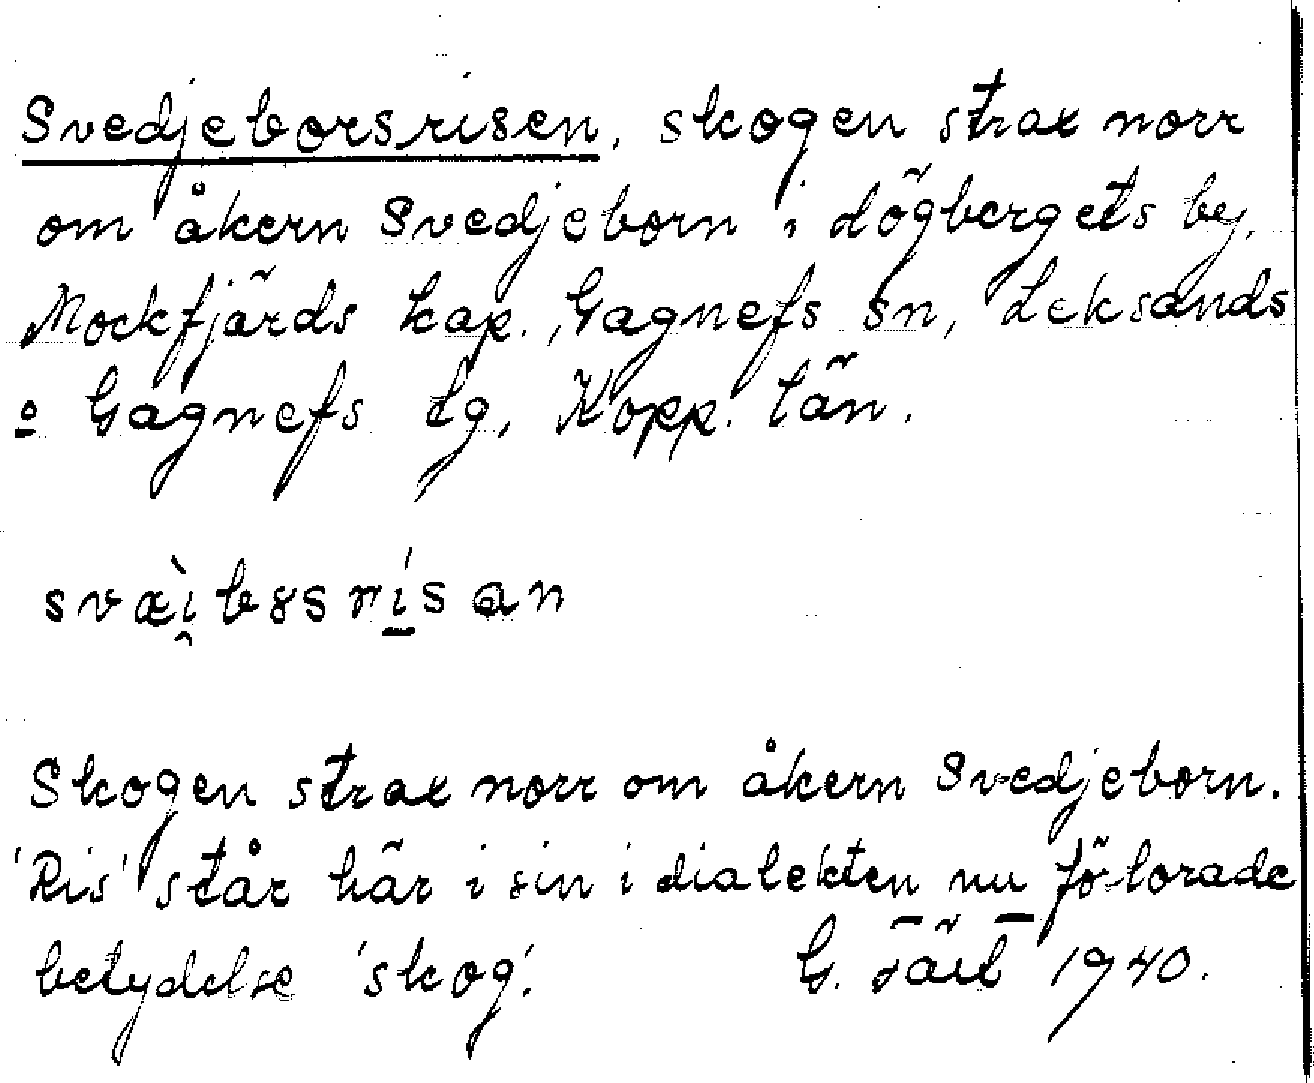 Svedjeborsrisen, skogen strax norr
om åkern Svedjeborn i Högbergets by,
Mockfjärds kap., Gagnefs sn, Leksands
o Gagnefs tg, Kopp. län.
svæ̀i̯bɞsrísan
Skogen strax norr om åkern Svedjeborn.
'Ris' står här i sin i dialekten nu förlorade
betydelse 'skog'. G. 1940.